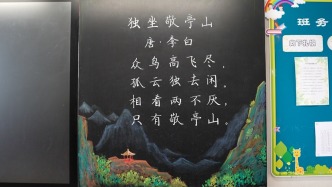 独坐敬亭山
唐·李白
众鸟高飞尽，
孤云独去闲。
相看两不厌，
只有敬亭山。
班务